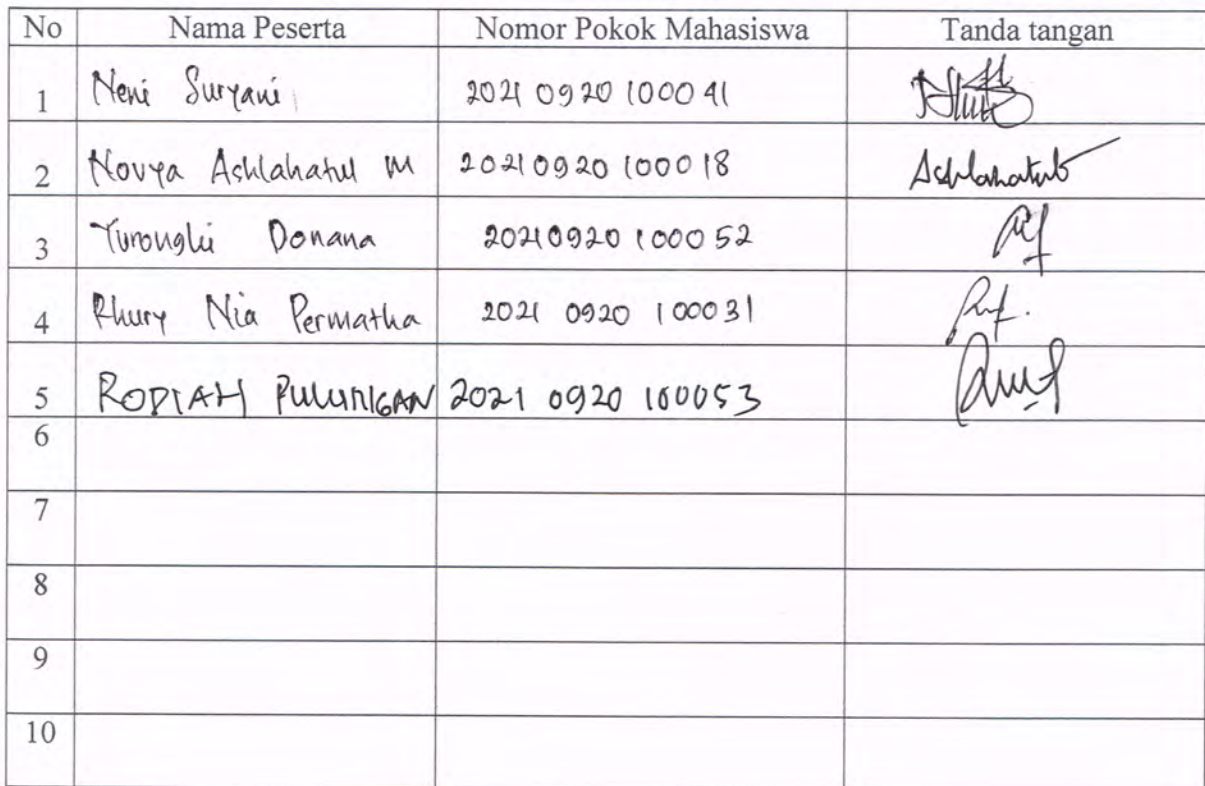 No Nama Peserta Nomor Pokok Mahasiswa Tanda tangan
1 Neni Suryani 20210920100041
2 Novya Ashlahatul M 20210920100018 Ashlahatul
3 Donana 20210920100052
4 Rhury Nia Permatha 2021 0920 100031
5 RODIAH 2021 0920 100053
6
7
8
9
10